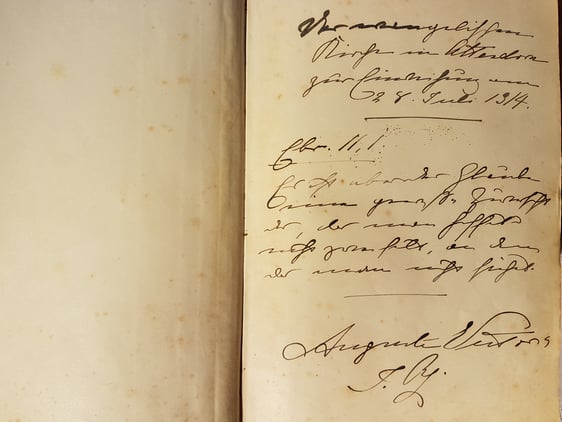 Der evangelischen
Kirche in Attendorn
zur Einweihung am
28. Juli 1914.
Ebr. 11,1.
Es ist aber der Glaube
eine gewisse Zuversicht
des, das man hoffet
nicht zweifelt, an dem
das man nicht siehet.
Auguste Victoria
I. R.